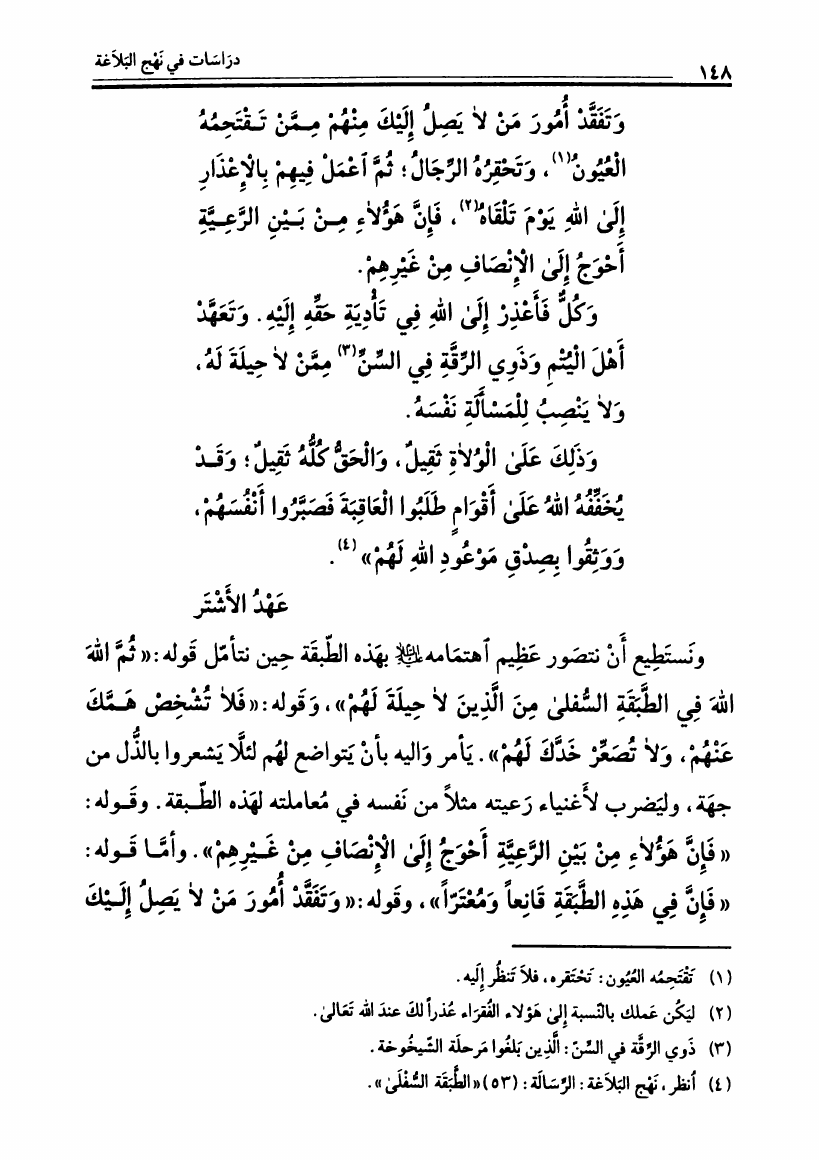 دِرَاسَات في نَهْج البَلاَغة
١٤٨
وَتَفَقَّدْ أُمُورَ مَنْ لاَ يَصِلُ إِلَيْكَ مِنْهُمْ مِمَّنْ تَقْتَحِمُهُ
الْعُيُونُ(١)، وَتَحْقِرُهُ الرِّجَالُ؛ ثُمَّ اَعْمَلْ فِيهِمْ بِالْإِعْذَارِ
إِلَىٰ اللهِ يَوْمَ تَلْقَاهُ(٢)، فَإِنَّ هَؤُلَاءِ مِنْ بَيْنِ الرَّعِيَّةِ
أَحْوَجُ إِلَىٰ الْإِنْصَافِ مِنْ غَيْرِهِمْ.
وَكُلٌّ فَأَعْذِرْ إِلَىٰ اللهِ فِي تَأْدِيَةِ حَقِّهِ إِلَيْهِ. وَتَعَهَّدْ
أَهْلَ الْيُتْمِ وَذَوِي الرِّقَّةِ فِي السِّنِّ(٣) مِمَّنْ لاَ حِيلَةَ لَهُ،
وَلاَ يَنْصِبُ لِلْمَسْأَلَةِ نَفْسَهُ.
وَذَلِكَ عَلَىٰ الْوُلاَةِ ثَقِيلٌ، وَالْحَقُّ كُلُّهُ ثَقِيلٌ؛ وَقَدْ
يُخَفِّفُهُ اللهُ عَلَىٰ أَقْوَامٍ طَلَبُوا الْعَاقِبَةَ فَصَبَّرُوا أَنْفُسَهُمْ،
وَوَثِقُوا بِصِدْقِ مَوْعُودِ اللهِ لَهُمْ» (٤).
عَهْدُ الأَشْتَر
ونَستَطِيع أَنْ نتصَور عَظِيم اَهتمَامه ﷺ بهَذه الطّبقَة حِين نتأمّل قَوله: «ثُمَّ اللهَ
اللهَ فِي الطَّبَقَةِ السُّفلىٰ مِنَ الَّذِينَ لاَ حِيلَةَ لَهُمْ»، وَقَوله: «فَلاَ تُشْخِصْ هَمَّكَ
عَنْهُمْ، وَلاَ تُصَعِّرْ خَدَّكَ لَهُمْ». يَأمر وَاليه بأنْ يَتواضع لهُم لئلَّا يَشعروا بالذُّل من
جهَة، وليَضرب لأغنياء رَعيته مثلاً من نَفسه في مُعاملته لهَذه الطّبقة. وقَوله:
«فَإِنَّ هَؤُلاَءِ مِنْ بَيْنِ الرَّعِيَّةِ أَحْوَجُ إِلَىٰ الْإِنْصَافِ مِنْ غَيْرِهِمْ». وأمَّا قَوله:
«فَإِنَّ فِي هَذِهِ الطَّبَقَةِ قَانِعاً وَمُعْتَرّاً»، وقَوله: «وَتَفَقَّدْ أُمُورَ مَنْ لاَ يَصِلُ إِلَيْكَ
(١) تَقْتَحِمُه العُيُون: تَحْتَقره، فلاَ تَنظُر إِلَيه.
(٢) ليَكُن عَملك بالنّسبة إِلىٰ هَؤلاء الفُقرَاء عُذراً لكَ عندَ الله تَعَالىٰ.
(٣) ذَوي الرِّقَّة في السِّنّ: الَّذِين بَلغُوا مَرحلَة الشّيخُوخة.
(٤) اُنظر، نَهْج البَلاَغة: الرِّسَالَة: (٥٣) «الطَّبَقَة السُّفْلَىٰ».